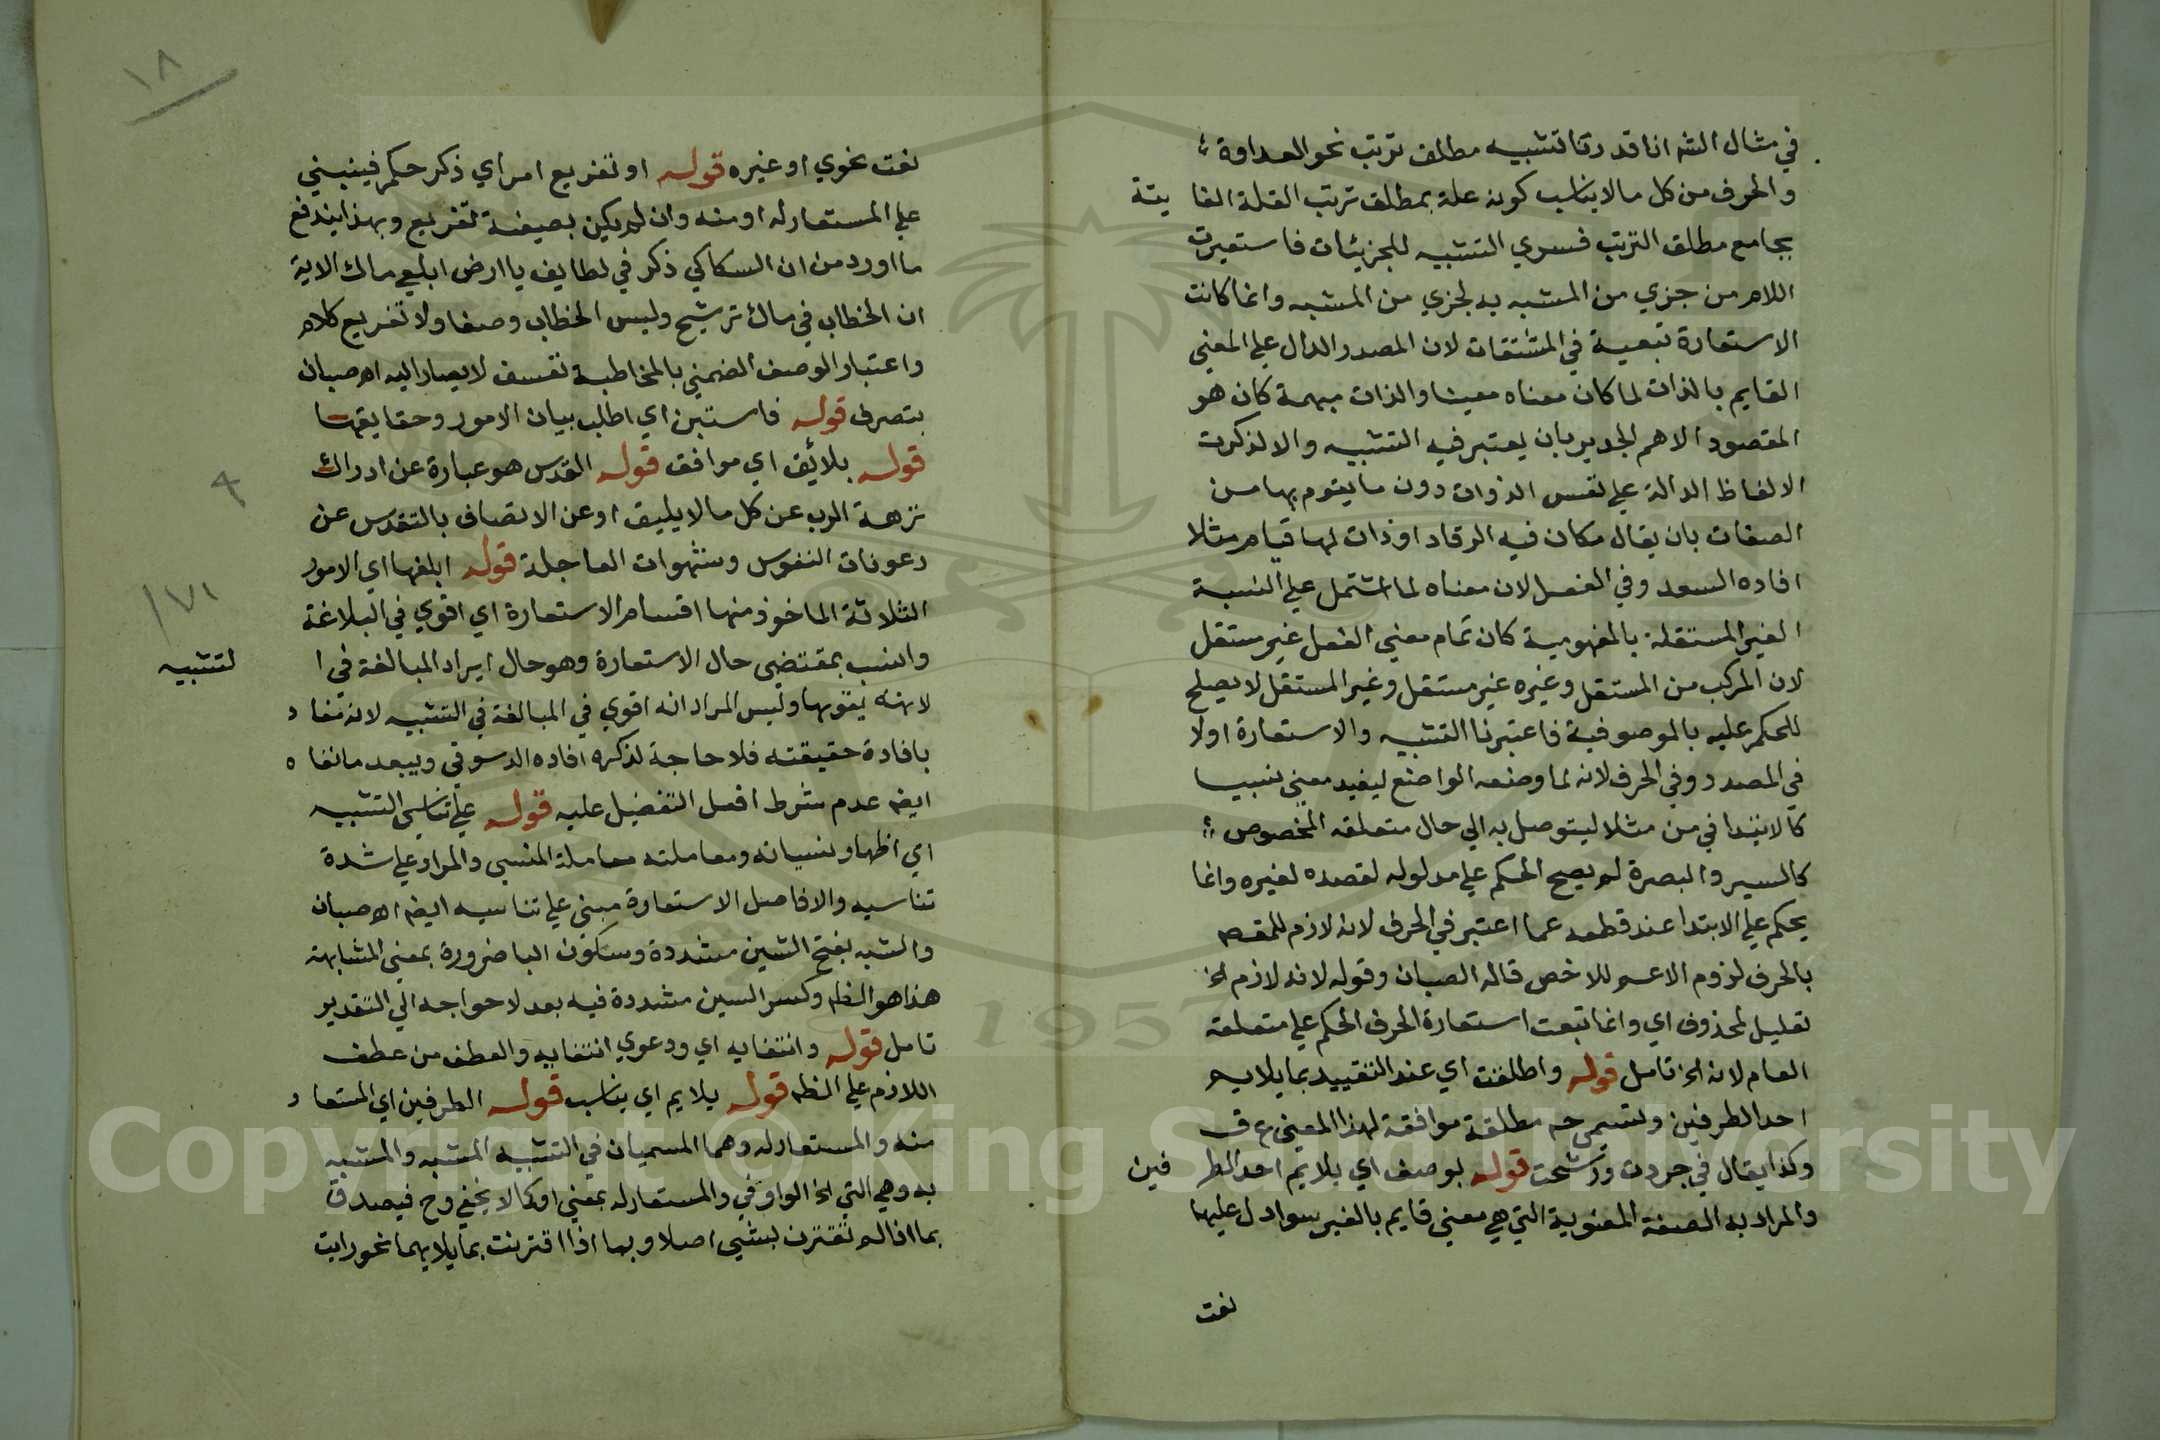 في مثال الشه انا قدرنا تشبيه مطلق ترتب نحو العداوة
والحرف من كل ما لا يناسب كونه علة بمطلق ترتب العلة الغا يتة
بجامع مطلق الترتب فسري التشبيه للجزئيات فاستعيرت
اللام من جزي من المشبه به لجزي من المشبه وانما كانت
الاستعارة تبعية في المشتقات لان المصدر الدال علي المعني
القايم بالذات لما كان معناه معينا والذات مبهمة كان هو
المقصود الاهم الجدير بان يعتبر فيه التشبيه والا لذكرت
الالفاظ الدالة علي نفس الذوات دون ما يقوم بها من
الصفات بان يقال مكان فيه الرقاد او ذات لها قيام مثلا
افاده السعد وفي الفعل لان معناه لما اشتمل علي النسبة
الغير المستقلة بالمفهومية كان تمام معني الفعل غير مستقل
لان المركب من المستقل وغيره غير مستقل وغير المستقل لا يصلح
للحكم عليه بالموصوفية فاعتبرنا التشبيه والاستعارة اولا
في المصدر وفي الحرف لانه لما وضعه الواضع ليفيد معني نسبيا
كالابتدا في من مثلا ليتوصل به الي حال متعلقه المخصوص
كالسير والبصرة لم يصح الحكم علي مدلوله لقصده لغيره وانما
يحكم علي الابتدا عند قطعه عما اعتبر في الحرف لانه لازم للمقصه
بالحرف لزوم الاعم للاخص قاله الصبان وقوله لانه لازم اخ
تعليل لمحذوف اي وانما تبعت استعارة الحرف الحكم علي متعلقه
العام لانه اخ تامل قوله واطلقت اي عند التقييد بما يلايم
احد الطرفين وتسمي ح مطلقة موافقة لهذا المعني ع ق
وكذا يقال في جردت ورشحت قوله بوصف اي يلايم احد الطر فين
والمراد به الصفة المعنوية التي هي معني قايم بالغير سوا دل عليها
نعت
١٨
نعت نحوي او غيره قوله او تفريع امر اي ذكر حكم فينبني
علي المستعار له او منه وان لم يكن بصيغة تفريع وبهذا يندفع
ما اورد من ان السكاكي ذكر في لطايف يا ارض ابلعي ماك الاية
ان الخطاب في ماك ترشيح وليس الخطاب وصفا ولا تفريع كلام
واعتبار الوصف الضمني بالمخاطبة تعسف لا يصار اليه اه صبان
بتصرف قوله فاستبن اي اطلب بيان الامور وحقايقها
قوله بلائق اي موافق قوله القدس هو عبارة عن ادراك
نزهة الرب عن كل ما لا يليق او عن الاتصاف بالتقدس عن
رعونات النفوس وشهوات العاجلة قوله ابلغها اي الامور
الثلاثة الماخوذ منها اقسام الاستعارة اي اقوي في البلاغة
وانسب بمقتضي حال الاستعارة وهو حال ايراد المبالغة في ا لتشبيه
لانه يقويها وليس المراد انه اقوي في المبالغة في التشبيه لانه مفا د
بافادة حقيقته فلا حاجة لذكره افاده الدسوقي ويبعد ما نفا ه
ايضه عدم شرط افعل التفضيل عليه قوله علي تناسي التشبيه
اي اظهار نسيانه ومعاملته معاملة المنسي والمراد علي شدة
تناسيه والا فاصل الاستعارة مبني علي تناسيه ايضه اه صبان
والشبه بفتح الشين مشددة وسكون البا ضرورة بمعني المشابهة
هذا هو الظه وكسر السين مشددة فيه بعد لاحواجه الي التقدير
تامل قوله وانتفايه اي ودعوي انتفايه والعطف من عطف
اللازم علي الظه قوله يلايم اي يناسب قوله الطرفين اي المستعا ر
منه والمستعار له وهما المسميان في التشبيه المشبه والمشبه
به وهي التي اخ الواو في والمستعار له بمعني او كما لا يخفي وح فيصدق
بما اذا لم تقترن بشي اصلا وبها اذا اقترنت بما يلايهما نحو رايت
٩
١٧١
Copyright © King Saud University
1957